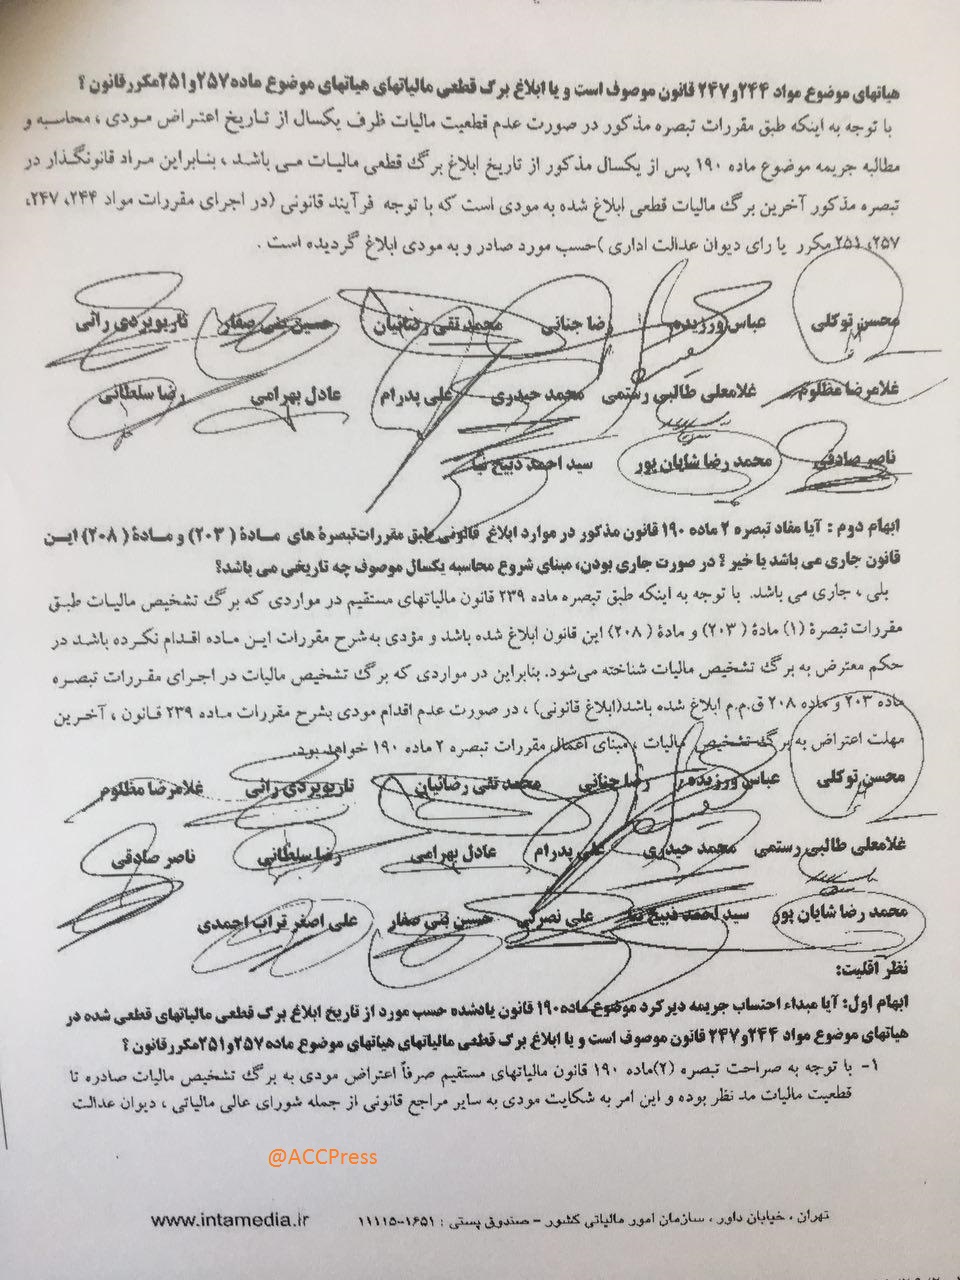 هیاتهای موضوع مواد ۲۴۴و۲۴۷ قانون موصوف است و یا ابلاغ برگ قطعی مالیاتهای هیاتهای موضوع ماده۲۵۷و۲۵۱مکررقانون ؟
با توجه به اینکه طبق مقررات تبصره مذکور در صورت عدم قطعیت مالیات ظرف یکسال از تاریخ اعتراض مودی ، محاسبه و
مطالبه جریمه موضوع ماده ۱۹۰ پس از یکسال مذکور از تاریخ ابلاغ برگ قطعی مالیات می باشد ، بنابراین مراد قانونگذار در
تبصره مذکور آخرین برگ مالیات قطعی ابلاغ شده به مودی است که با توجه فرآیند قانونی (در اجرای مقررات مواد ۲۴۴، ۲۴۷،
۲۵۷، ۲۵۱ مکرر یا رای دیوان عدالت اداری )حسب مورد صادر و به مودی ابلاغ گردیده است .
محسن توکلی عباس ورزیده رضا جنانی محمد تقی رضائیان حسین بنی صفار تاریوبردی رانی
غلامرضا مظلوم غلامعلی طالبی رستمی محمد حیدری علی پدرام عادل بهرامی رضا سلطانی
ناصر صادقی محمد رضا شایان پور سید احمد ذبیح نیا
ابهام دوم : آیا مفاد تبصره ۲ ماده ۱۹۰ قانون مذکور در موارد ابلاغ قانونی طبق مقررات تبصرۀ های مادۀ ( ۲۰۳) و مادۀ ( ۲۰۸) این
قانون جاری می باشد یا خیر ؟ در صورت جاری بودن، مبنای شروع محاسبه یکسال موصوف چه تاریخی می باشد؟
بلی ، جاری می باشد. با توجه به اینکه طبق تبصره ماده ۲۳۹ قانون مالیاتهای مستقیم در مواردی که برگ تشخیص مالیات طبق
مقررات تبصرۀ (۱) مادۀ ( ۲۰۳) و مادۀ ( ۲۰۸) این قانون ابلاغ شده باشد و مؤدی به‌شرح مقررات این ماده اقدام نکرده باشد در
حکم معترض به برگ تشخیص مالیات شناخته می‌شود. بنابراین در مواردی که برگ تشخیص مالیات در اجرای مقررات تبصره
ماده ۲۰۳ و ماده ۲۰۸ ق.م.م ابلاغ شده باشد(ابلاغ قانونی) ، در صورت عدم اقدام مودی بشرح مقررات ماده ۲۳۹ قانون ، آخرین
مهلت اعتراض به برگ تشخیص مالیات ، مبنای اعمال مقررات تبصره ۲ ماده ۱۹۰ خواهد بود.
محسن توکلی عباس ورزیده رضا جنانی محمد تقی رضائیان تاریوبردی رانی غلامرضا مظلوم
غلامعلی طالبی رستمی محمد حیدری علی پدرام عادل بهرامی رضا سلطانی ناصر صادقی
محمد رضا شایان پور سید احمد ذبیح نیا علی نصرتی حسین بنی صفار علی اصغر تراب احمدی
نظر اقلیت:
ابهام اول: آیا مبداء احتساب جریمه دیرکرد موضوع ماده۱۹۰ قانون یادشده حسب مورد از تاریخ ابلاغ برگ قطعی مالیاتهای قطعی شده در
هیاتهای موضوع مواد ۲۴۴و۲۴۷ قانون موصوف است و یا ابلاغ برگ قطعی مالیاتهای هیاتهای موضوع ماده۲۵۷و۲۵۱مکررقانون ؟
۱- با توجه به صراحت تبصره (۲)ماده ۱۹۰ قانون مالیاتهای مستقیم صرفاً اعتراض مودی به برگ تشخیص مالیات صادره تا
قطعیت مالیات مد نظر بوده و این امر به شکایت مودی به سایر مراجع قانونی از جمله شورای عالی مالیاتی ، دیوان عدالت
@ACCPress
تهران ، خیابان داور ، سازمان امور مالیاتی کشور – صندوق پستی : ۱۶۵۱-۱۱۱۱۵ www.intamedia.ir